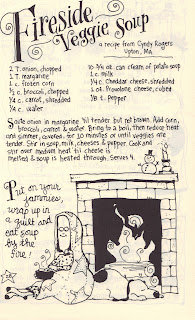 Fireside
Veggie Soup
a recipe from Cyndy Rogers
Upton, MA
2 T. onion, chopped
1 T. margarine
1 c. frozen corn
½ c. broccoli, chopped
¼ c. carrot, shredded
¼ c. water
10-¾ oz. can cream of potato soup
1 c. milk
¼ c. cheddar cheese, shredded
1 oz. Provolone cheese, cubed
⅛ t. pepper
Saute onion in margarine 'til tender but not brown. Add corn,
broccoli, carrot & water. Bring to a boil, then reduce heat
and simmer, covered, for 10 minutes or until veggies are
tender. Stir in soup, milk, cheeses & pepper. Cook and
stir over medium heat 'til cheese is
melted & soup is heated through. Serves 4.
Put on your
jammies,
wrap up in
a quilt and
eat soup
by the
fire!